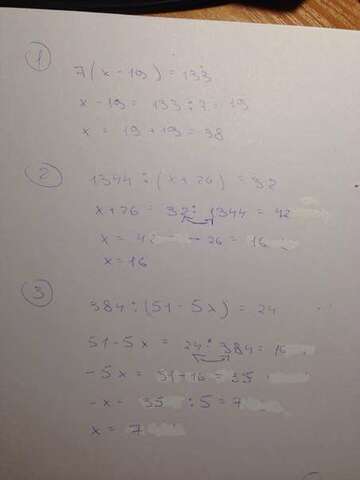 1
7(x-19) = 133
x-19 = 133:7 = 19
x = 19+19 = 38
2
1344:(x+26) = 32
x+26 = 32:1344 = 42
x = 42 - 26 = 16
x=16
3
384:(51-5x) = 24
51-5x = 24:384 = 16
-5x = 51+16 = 35
-x = 35:5 = 7
x = 7